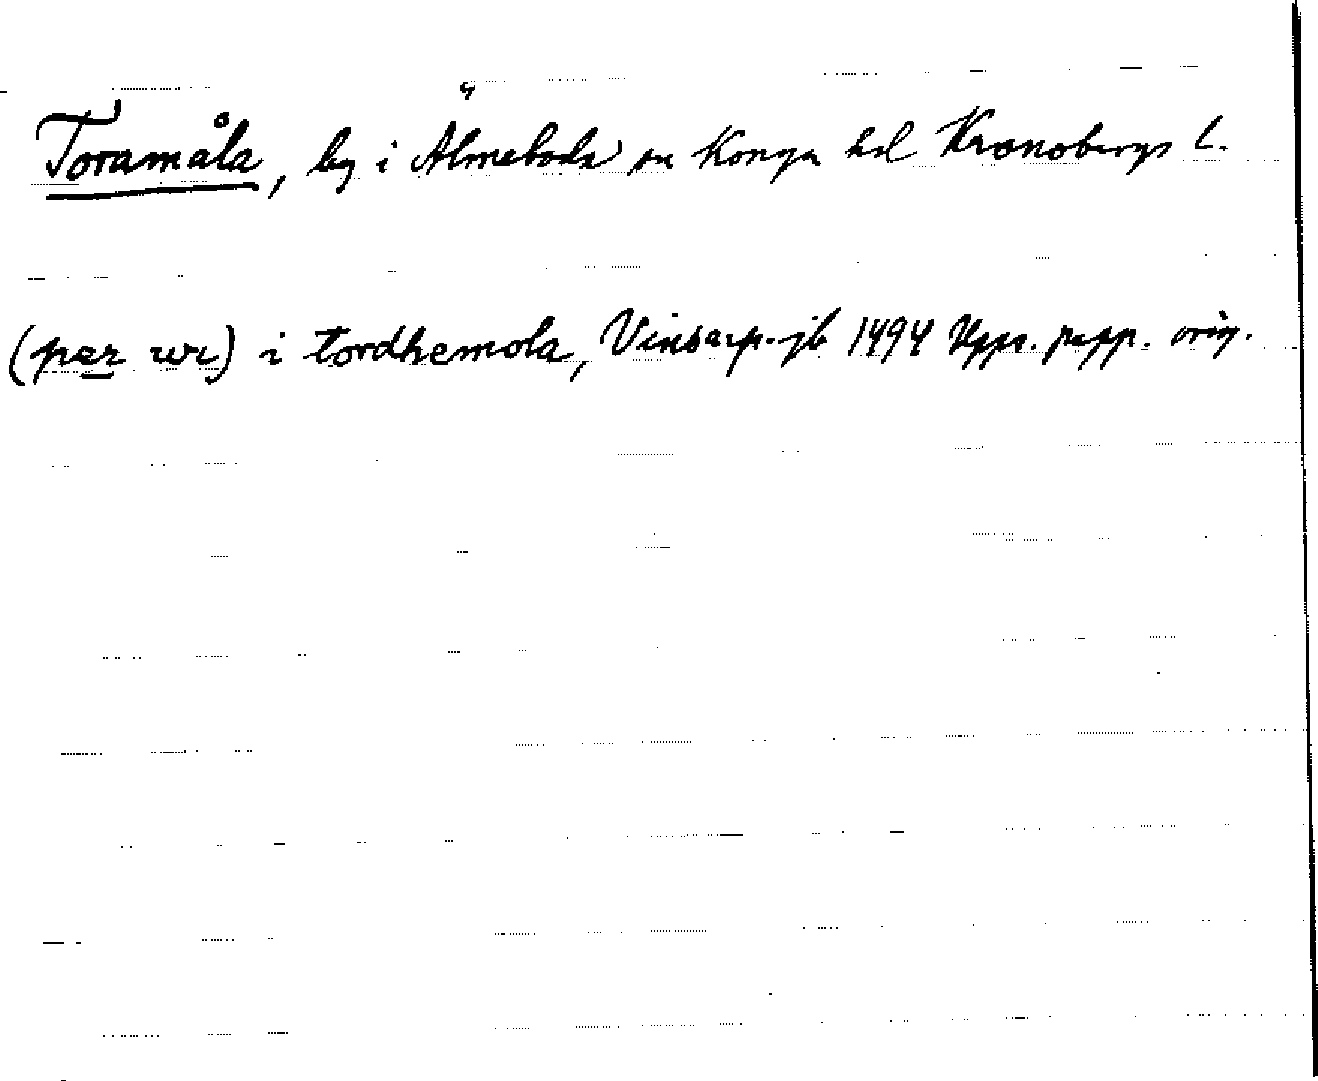 Toramåla, by i Älmeboda sn Konga hd Kronobergs l.
(per wr) i tordhemola, Vinsarp. jb 1494 Upps. papp. orig.